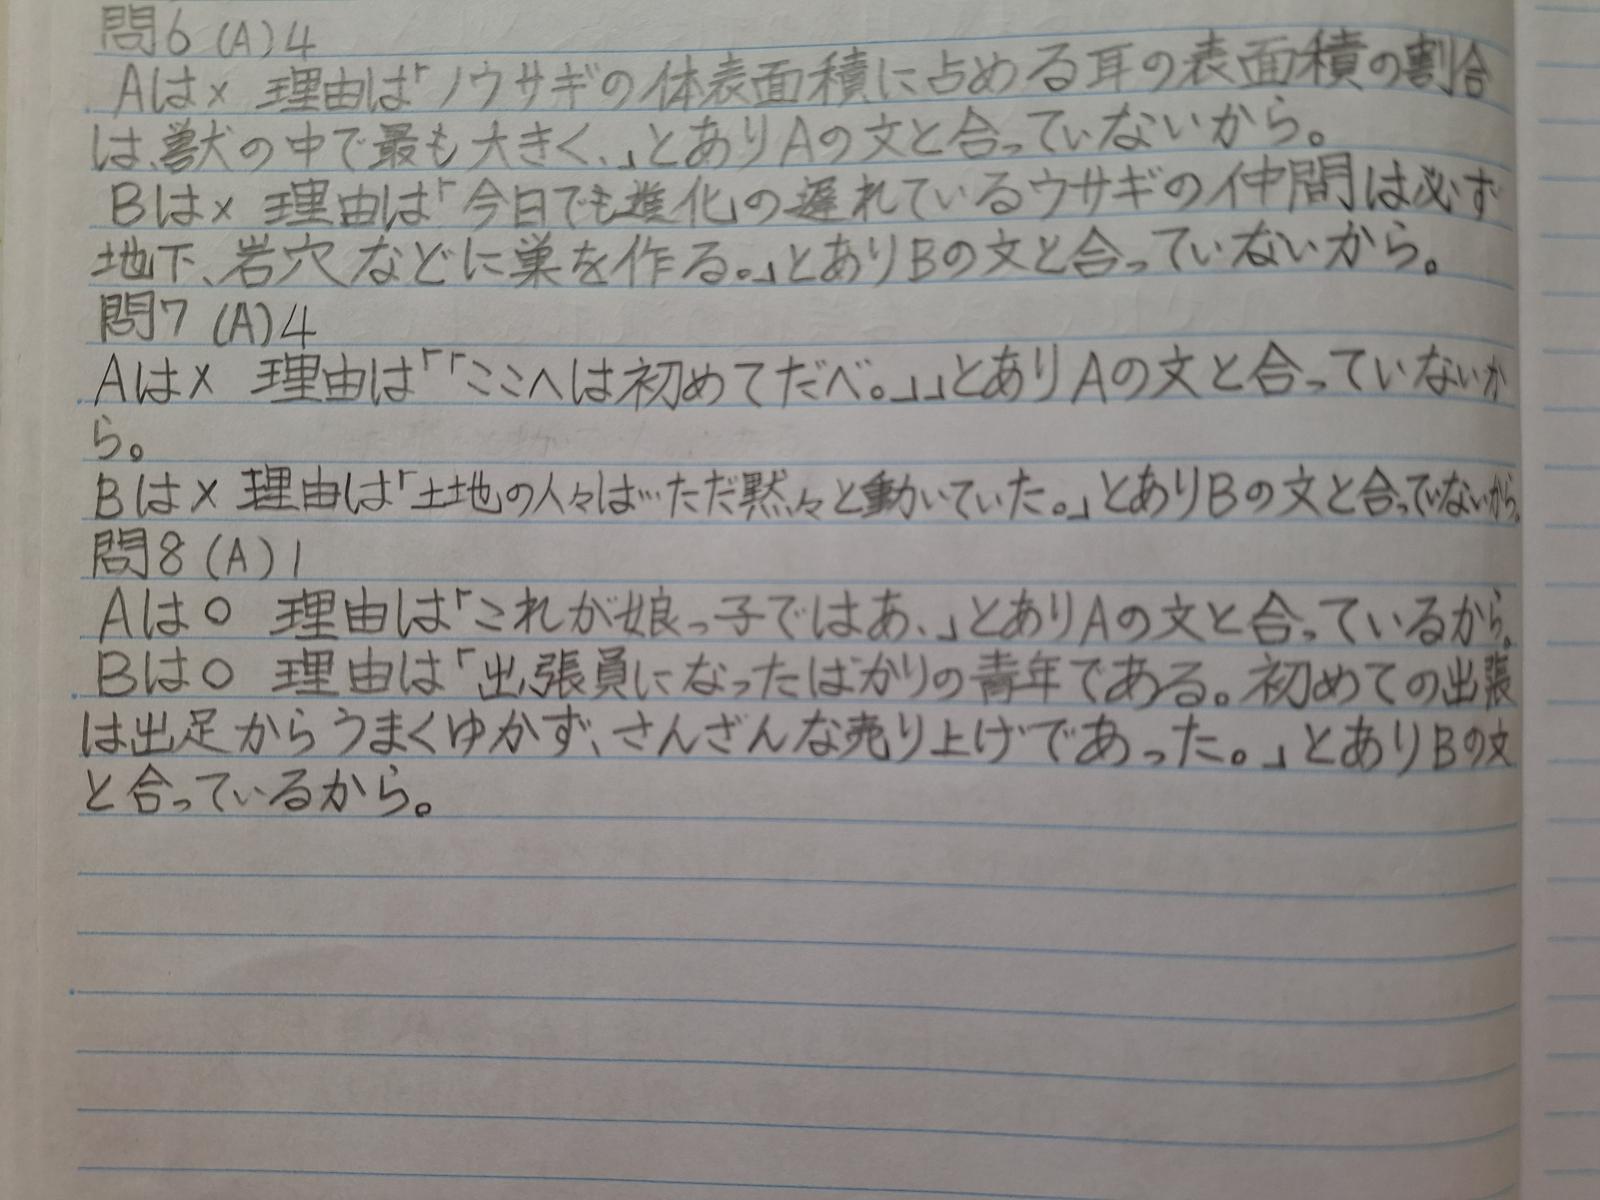 問6 (A)4
Aは× 理由は「ノウサギの体表面積に占める耳の表面積の割合
は、獣の中で最も大きく、」とありAの文と合っていないから。
Bは× 理由は「今日でも進化の遅れているウサギの仲間は必ず
地下、岩穴などに巣を作る。」とありBの文と合っていないから。
問7 (A)4
Aは× 理由は「「ここへは初めてだべ。」」とありAの文と合っていないか
ら。
Bは× 理由は「土地の人々は…ただ黙々と動いていた。」とありBの文と合っていないから。
問8 (A)1
Aは○ 理由は「これが娘っ子ではあ、」とありAの文と合っているから。
Bは○ 理由は「出張員になったばかりの青年である。初めての出張
は出足からうまくゆかず、さんざんな売り上げであった。」とありBの文
と合っているから。